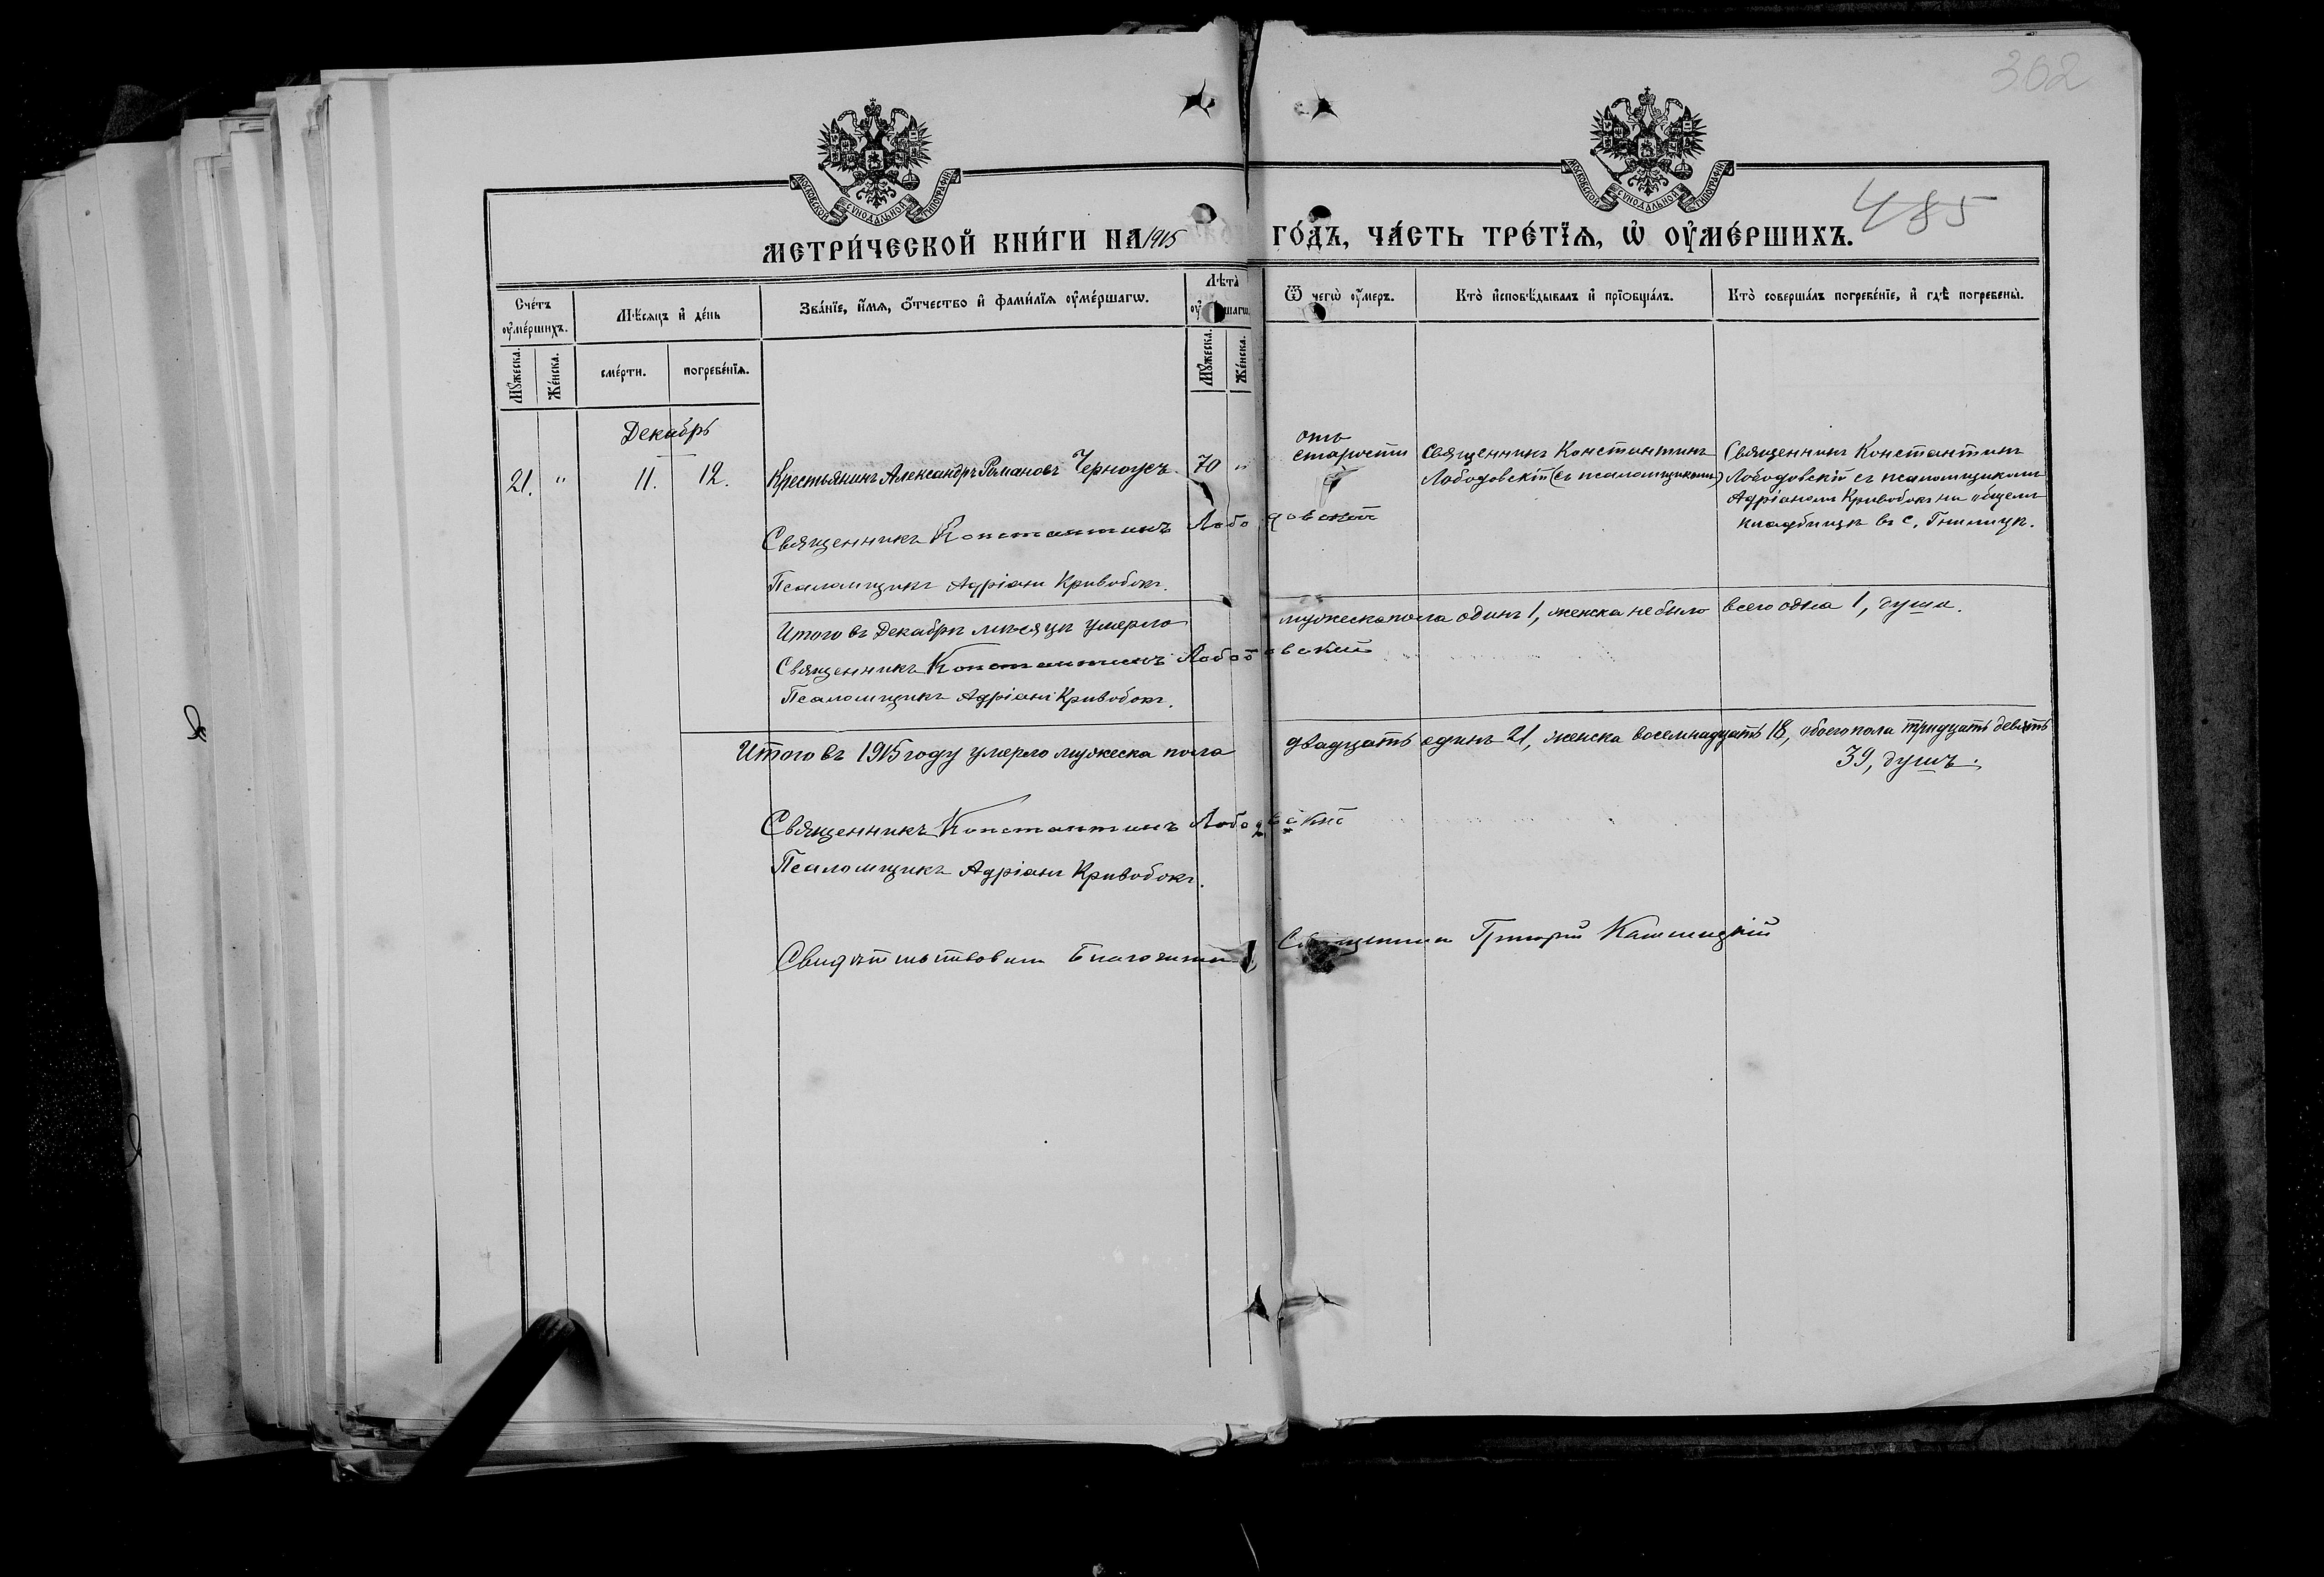 302
485
МОСКОВСКОЙ СѴНОДАЛЬНОЙ ТИПОГРАФІИ
МОСКОВСКОЙ СѴНОДАЛЬНОЙ ТИПОГРАФІИ
МЕТРИ́ЧЕСКОЙ КНИ́ГИ НА 1915 ГО́ДЪ, ЧА́СТЬ ТРЕ́ТІѦ, Ѡ҆ ОУ҆МЕ́РШИХЪ.
Сче́тъ оу҆ме́ршихъ.
Мꙋ́жеска.
Же́нска.
Мѣ́сяцъ и҆ де́нь
сме́рти.
погребе́нїѧ.
Зва́нїе, и҆́мѧ, ѻ҆́тчество и҆ фами́лїѧ оу҆ме́ршагѡ.
Лѣта̀ оу҆ме́ршагѡ.
Мꙋ́жеска.
Же́нска.
Ѿ чегѡ̀ оу҆́меръ.
Кто̀ и҆сповѣ́дывалъ и҆ прїѡбща́лъ.
Кто̀ соверша́лъ погребе́нїе, и҆ гдѣ̀ погребены̀.
Декабрь
21. " 11. 12. Крестьянинъ Александръ Романовъ Черноусъ. 70 "
отъ
старости
Священникъ Константинъ
Лободовскій (съ псаломщикомъ)
Священникъ Константинъ
Лободовскій съ псаломщикомъ
Адріаномъ Кривобокъ на общемъ
кладбищѣ въ с. Гнилицѣ.
Священникъ Константинъ Лободовскій
Псаломщикъ Адріанъ Кривобокъ.
Итого въ Декабрѣ мѣсяцѣ умерло мужеска пола одинъ 1, женска не было всего одна 1, душа.
Священникъ Константинъ Лободовскій
Псаломщикъ Адріанъ Кривобокъ.
Итого въ 1915 году умерло мужеска пола двадцать одинъ 21, женска восемнадцать 18, обоего пола тридцать девять
39, душъ.
Священникъ Константинъ Лободовскій
Псаломщикъ Адріанъ Кривобокъ.
Свидѣтельствовалъ Благочинный Священникъ Григорій